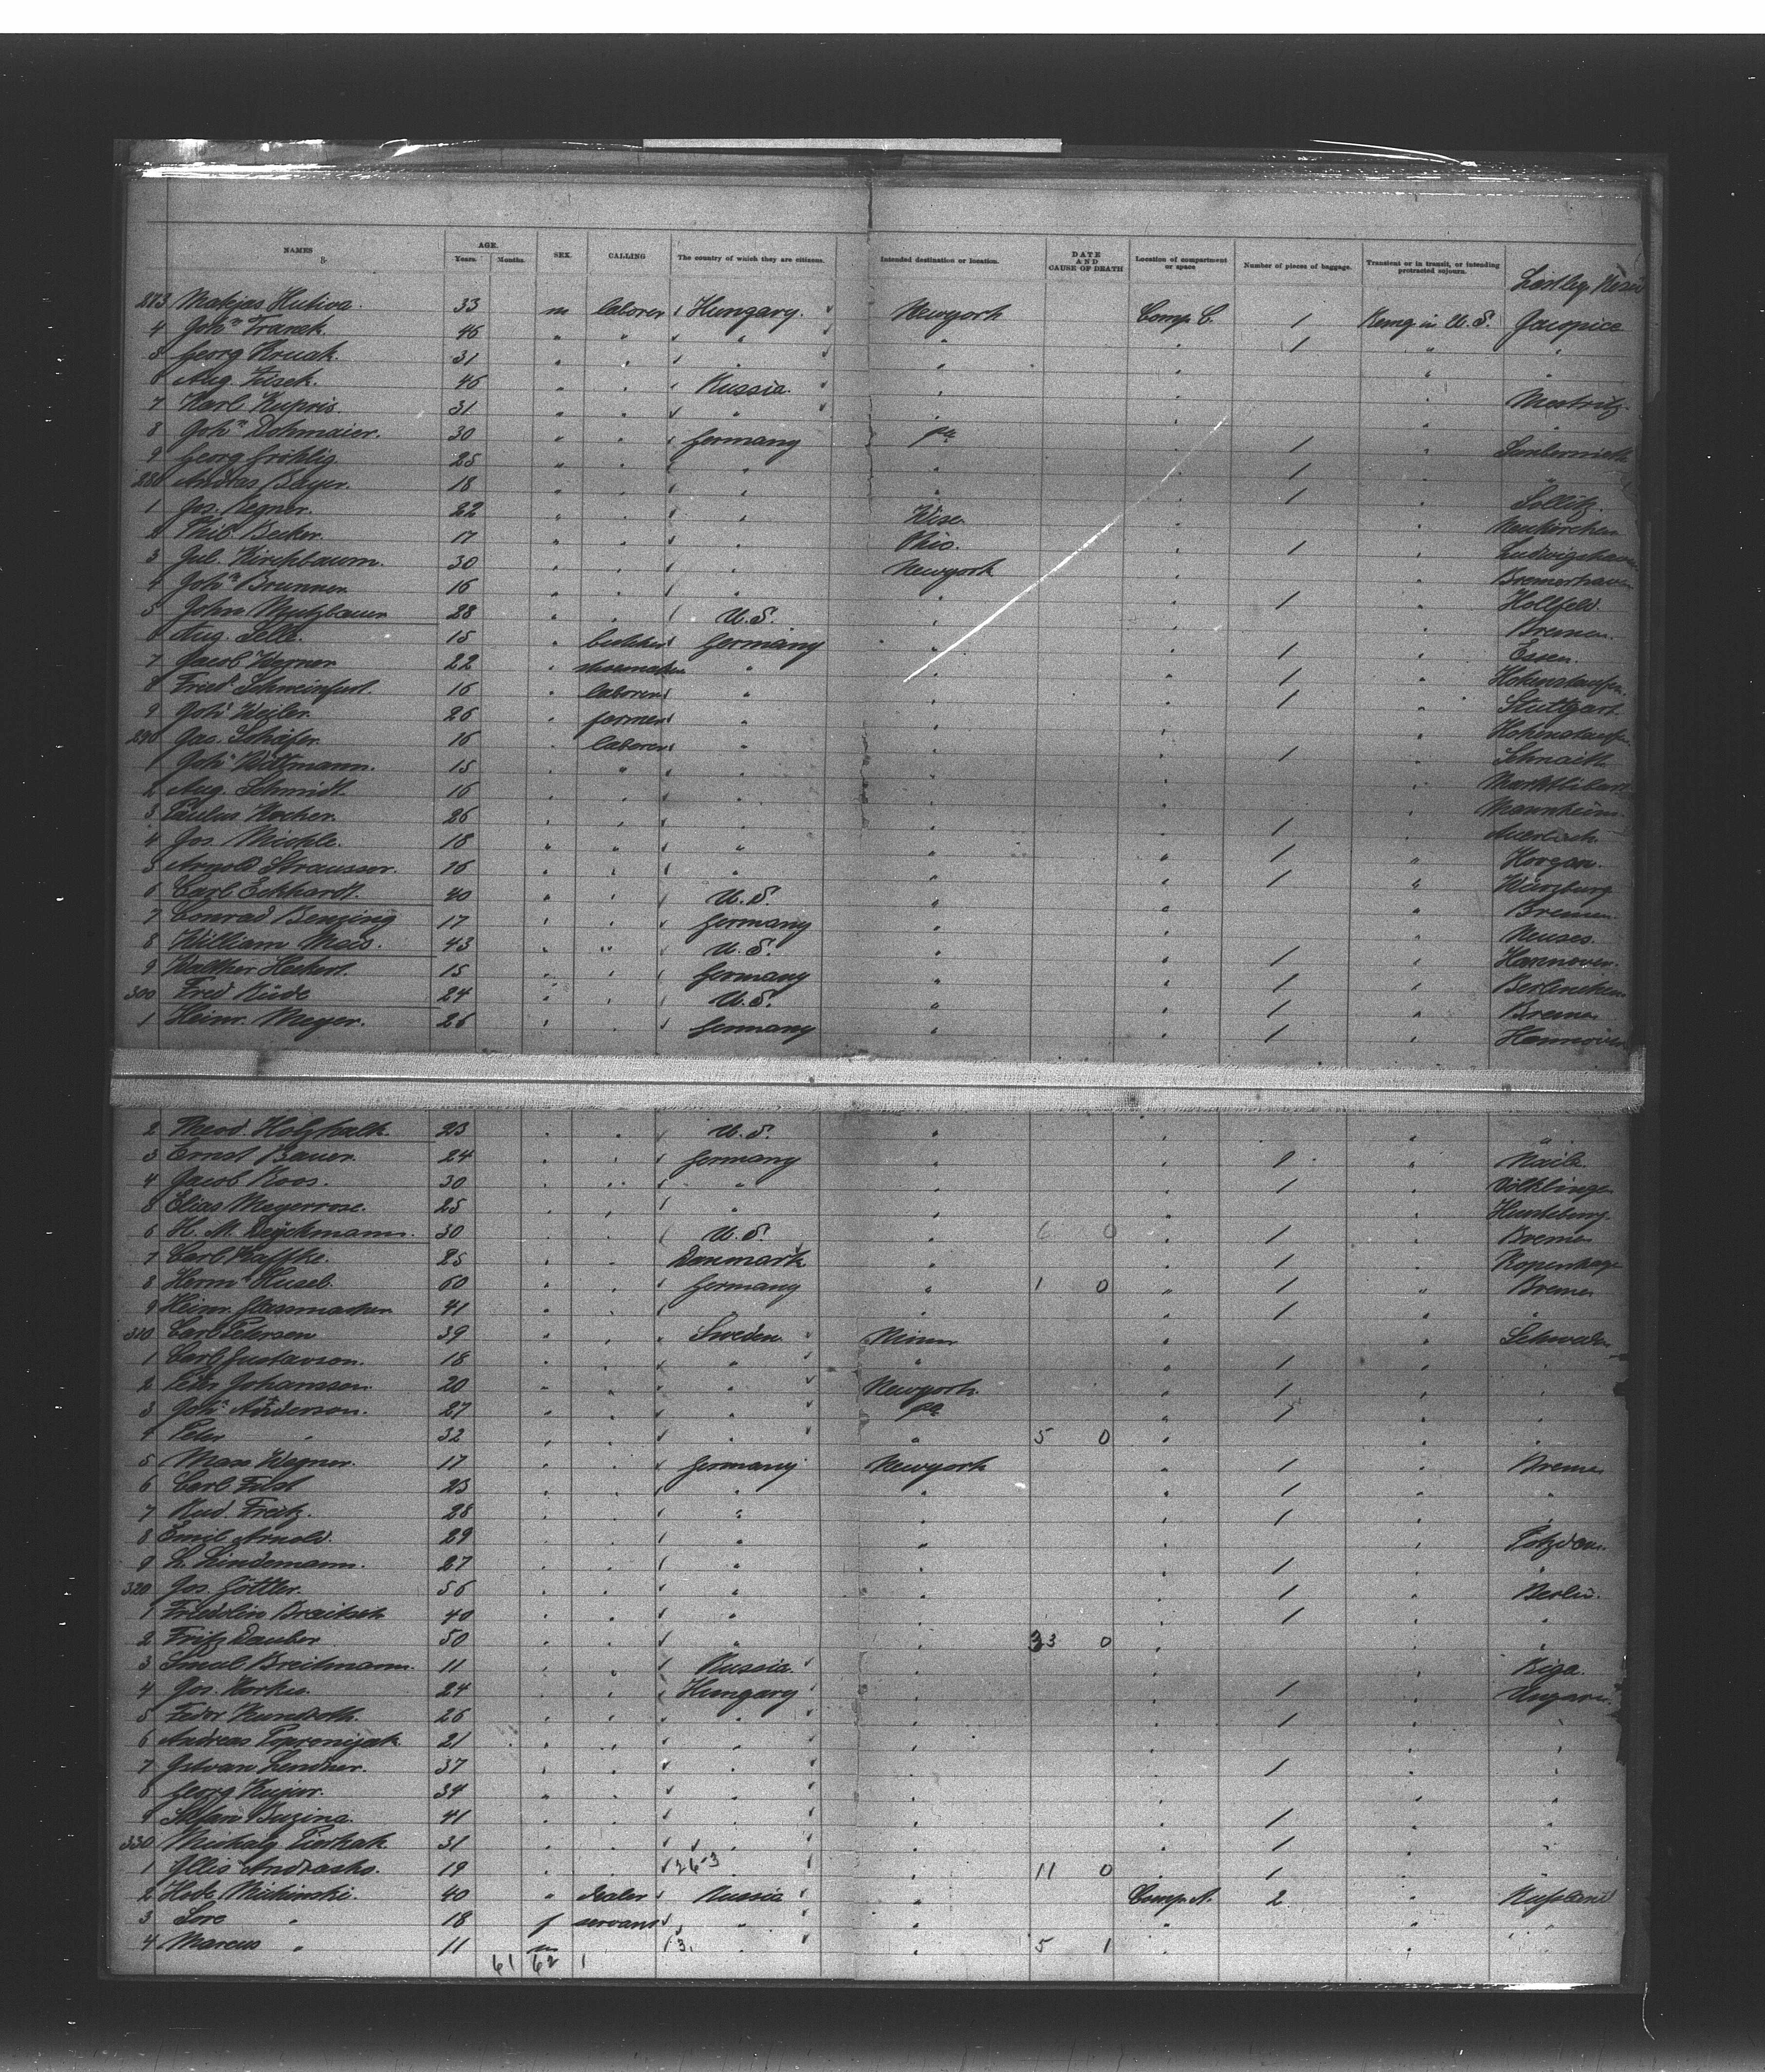 NAMES AGE. Years. Months. SEX. CALLING The country of which they are citizens. Intended destination or location. DATE AND CAUSE OF DEATH Location of compartment or space Number of pieces of baggage. Transient or in transit, or intending protracted sojourn.
273 33 m laborer Hungary. Newyork Comp. C. 1 U. S.
4 Joh.n Franek 46 " " " " " 1 "
5 Georg Hruak. 31 " " " " "
6 Aug. 46 " " Russia. " "
7 Karl Kupris. 31 " " " " "
8 Joh.n Dohmaier. 30 " " Germany Pa 1 "
9 Georg Fröhlig 25 " " " " " 1 "
280 Andras Bayer. 18 " " " " " 1 " Söllitz.
1 Jos. Regner. 22 " " " Wisc. " " Neukirchen
2 Phil. Becker. 17 " " " Ohio. " 1 " Ludwigshaven
3 Jul. Kirschbaum. 30 " " " Newyork " " Bremerhaven
4 Joh.n Brunner 16 " " " " " 1 " Hollfeld.
5 John Mutzbauer 28 " " U. S. " " " Bremen.
6 Aug. Selle. 15 " butcher Germany " " 1 " Essen.
7 Jacob Werner 22 " shoemaker " " " 1 " Hohenstaufen.
8 Fried. Schweinfurt. 16 " laborer " " " 1 " Stuttgart
9 Joh. Weiler. 26 " farmer " " " " Hohenstaufen
290 Jac. Schäfer. 16 " laborer " " " 1 " Schnaith.
1 Joh. Wittmann. 15 " " " " " "
2 Aug. Schmidt. 16 " " " " " " Mannheim.
3 Paulus Kocher. 26 " " " " " 1 " Auerbach.
4 Jos. Michle. 18 " " " " " 1 " Horgan.
5 Arnold Strausser. 16 " " " " " 1 " Würzburg
6 Carl Eckhardt. 40 " " U. S. " " " Bremen.
7 Conrad Benzing 17 " " Germany " " " Neuses.
8 William 43 " " U. S. " " 1 " Hannover.
9 Walther Heckert. 15 " " Germany " " 1 " Berlinchen
300 Fred Rüde 24 " " U. S. " " 1 " Bremen
1 Heinr. Meyer. 26 " " Germany " " 1 " Hannover
2 Theod. Holzkalk. 23 " " U. S. " " " "
3 Ernst Bauer. 24 " " Germany " " 1 " Naila.
4 Jacob Koos. 30 " " " " " 1 " Völklingen
5 Elias Meyerrose. 25 " " " " " " Hunteburg.
6 H. M. Deyckmann. 30 " " U. S. " 6 0 " 1 " Bremen
7 Carl Raffke. 25 " " Danmark " " 1 " Kopenhagen
8 Herm. 60 " " Germany " 1 0 " 1 " Bremen
9 Heinr. Glassmacher 41 " " " " " 1 " "
310 Carl Peterson 39 " " Sweden Minn " " Schweden
1 Carl Gustavson. 18 " " " " " 1 " "
2 Peter Johansson. 20 " " " Newyork. " 1 " "
3 Joh. Anderson. 27 " " " Pa " 1 " "
4 Peter " 32 " " " " 5 0 " " "
5 Max Wegner. 17 " " Germany Newyork " 1 " Bremen
6 Carl 23 " " " " " 1 " "
7 Rud. Freitz. 28 " " " " " 1 " "
8 Emil Arnold. 29 " " " " " " Potzdam.
9 L. Lindemann. 27 " " " " " 1 " "
320 Jos. Göttler. 56 " " " " " 1 " Berlin.
1 Friedolin Braitsch 40 " " " " " 1 " "
2 Fritz Dauber 50 " " " " 33 0 " " "
3 Breitmann. 11 " " Russia. " " " Riga.
4 Jos. 24 " " Hungary " " 1 " Ungarn.
5 Fedor 26 " " " " " 1 " "
6 Andreas 21 " " " " " " "
7 Istvan Lendner. 37 " " " " " 1 " "
8 Georg Kujur. 34 " " " " " " "
9 Stefan Buzina. 41 " " " " " 1 " "
330 31 " " " " " 1 " "
1 Illis Andrasko. 19 " " 26 3 " 11 0 " 1 " "
2 40 " dealer Russia " Comp. A. 2 " Russland
3 Sore " 18 f servant " " " " "
4 Marcus " 11 m 3 " " 5 1 " " "
61 62 1